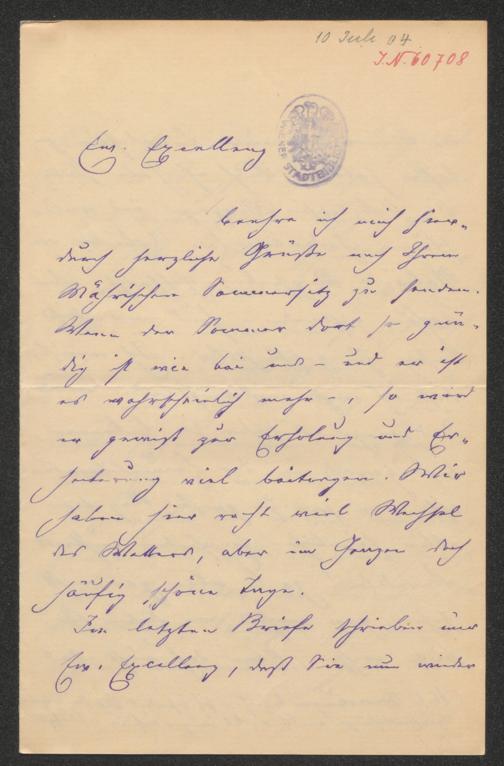 10 Juli 04.
I.N. 60708
WIENER STADTBIBL
Ew. Excellenz
beehre ich mich hier-
durch herzliche Grüße nach Ihrem
Mährischen Sommersitz zu senden.
Wenn der Sommer dort so gün-
stig ist wie bei uns – und er ist
es wahrscheinlich mehr –, so wird
er gewiß zur Erholung und Er-
heiterung viel beitragen. Wir
haben hier recht viel Wechsel
des Wetters, aber im Ganzen doch
häufig schöne Tage.
Im letzten Briefe schrieben mir
Ew. Excellenz, daß Sie nun wieder